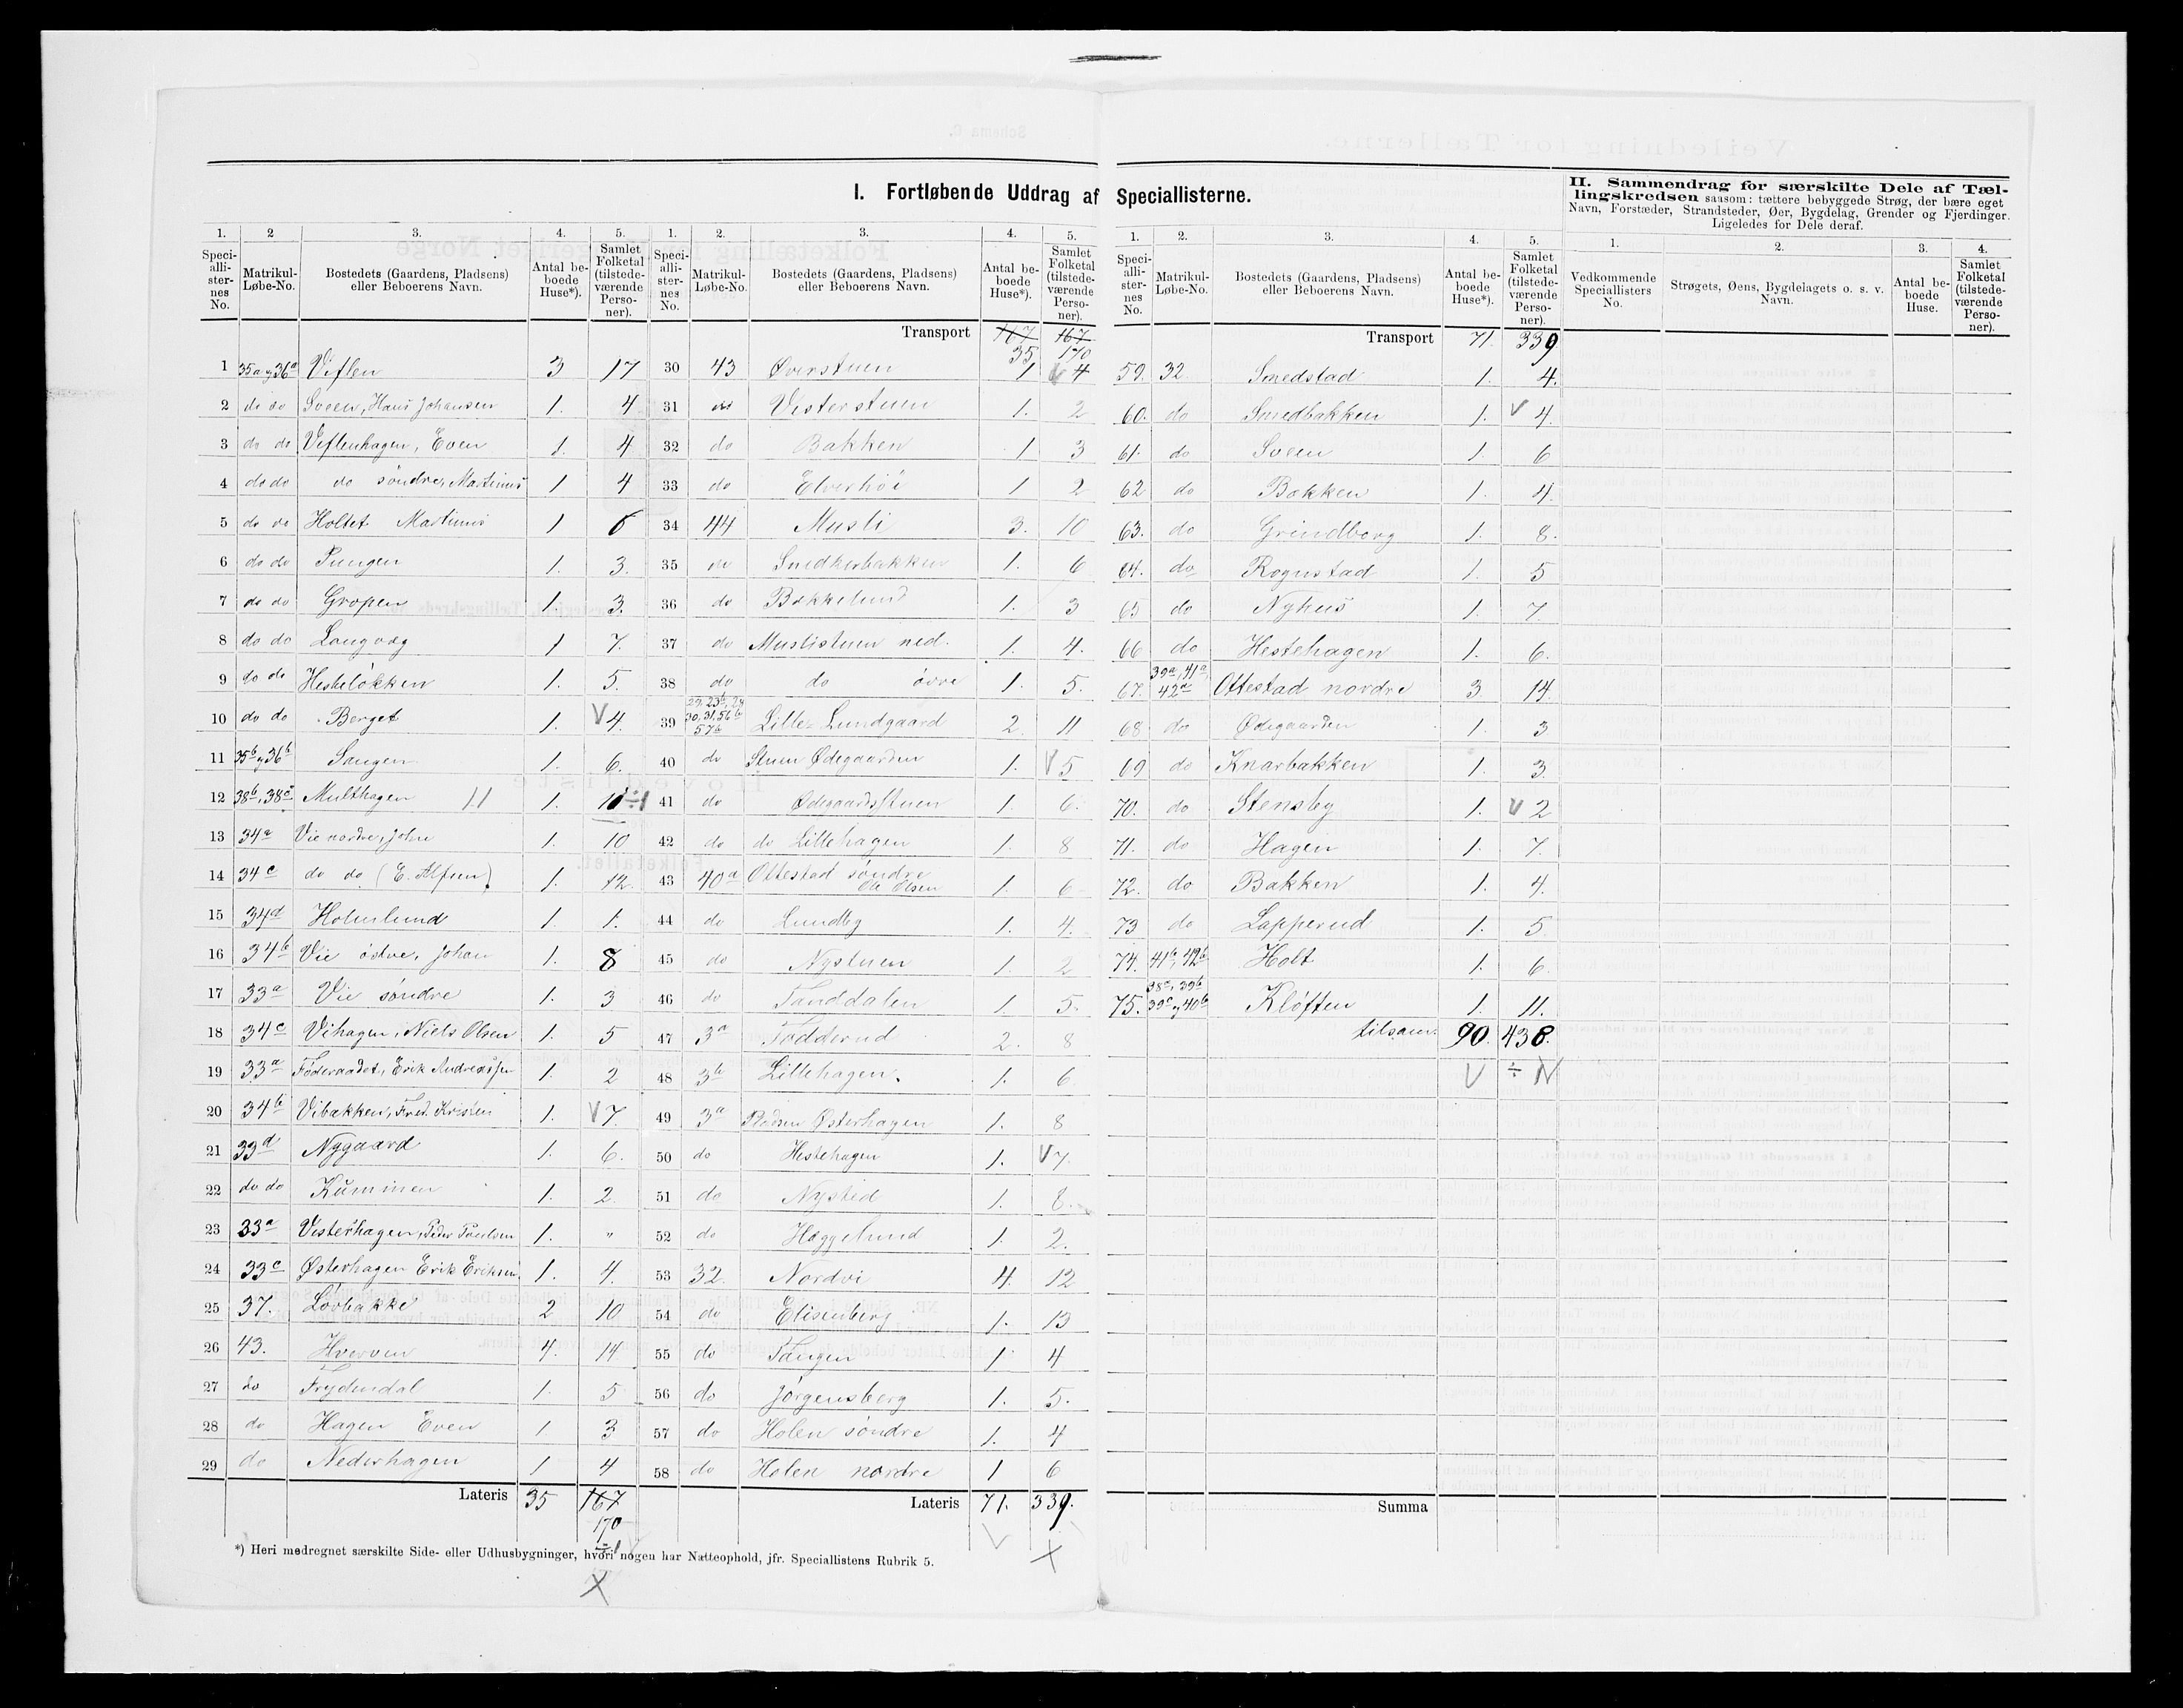 I. Fortløbende Uddrag af Speciallisterne.
II. Sammendrag for særskilte Dele af Tællingskredsen saasom: tættere bebyggede Strøg, der bære eget
Navn, Forstæder, Strandsteder, Øer, Bygdelag, Grender og Fjerdinger.
Ligeledes for Dele deraf.
1. 2 3. 4. 5.
Speciallisternes No. Matrikul-Løbe-No. Bostedets (Gaardens, Pladsens) eller Beboerens Navn. Antal beboede Huse*). Samlet Folketal (tilstedeværende Personer).
1 35a og 36a Viflen 3 17
2 do do Sveen, Hans Johansen 1. 4
3 do do Viflenhagen, Even 1. 4
4 do do do søndre, Martinus 1 4
5 do do Holtet Martinus 1 6
6 do do Pungen 1. 3.
7 do do Gropen 1. 3.
8 do do Langvæg 1 7.
9 do do Hesteløkken 1. 5.
10 do do Berget 1. V 4.
11 35b og 36b Sangen 1. 6.
12 38b, 38c Multhagen 11 1. 10 ÷1
13 34a Vie nordre, John 1. 10
14 34c do do (E. Alfsen) 1. 12.
15 34d Holmlund 1. 1.
16 34b Vie østre, Johan 1. 8
17 33a Vie søndre 1. 3
18 34c Vihagen, Niels Olsen 1. 5
19 33a Føderaadet, Erik Andreassen 1. 2
20 34b Vibakken, Fred. Kristen 1. V 7.
21 33d Nygaard 1. 6.
22 do do Kummen 1. 2.
23 33a Vesterhagen, Peder Poulsen 1. "
24 33c Østerhagen Erik Eriksen 1. 4.
25 37. Løvbakke 2 10
26 43. Hverven 4. 14
27 do Frydendal 1. 5
28 do Hagen Even 1 3
29 do Nederhagen 1 4
Lateris 35 167
170
÷1
1. 2. 3. 4. 5.
Speciallisternes No. Matrikul-Løbe-No. Bostedets (Gaardens, Pladsens) eller Beboerens Navn. Antal beboede Huse*). Samlet Folketal (tilstedeværende Personer).
Transport 167 167
35 170
30 43 Øverstuen 1 V 4
31 do Vesterstuen 1. 2
32 do Bakken 1 3
33 do Elverhøi 1 2
34 44 Musli 3. 10
35 do Snedkerbakken 1. 6
36 do Bækkelund 1. 3
37 do Muslistuen ned. 1. 4.
38 do do øvre 1. 5.
39 Lille-Lundgaard 2 11
40 do Stuen Ødegaarden 1. V 5
41 do Ødegaardsstuen 1. 6.
42 do do Lillehagen 1. 8
43 40a Ottestad søndre Ole Olsen 1. 6
44 do Lundby 1. 4.
45 do Nystuen 1. 2
46 do Tanddalen 1. 5.
47 3a Tødderud 2. 8
48 3b Lillehagen. 1. 6
49 3a Pladsen Østerhagen 1. 8
50 do Hestehagen 1. V 7.
51 do Nystid 1. 8.
52 do Heggelund 1. 2.
53 32. Nordvi 4. 12
54 do Elisenberg 1. 13
55 do Tangen 1 4
56 do Jørgensberg 1. 5.
57 do Holen søndre 1. 4
58 do Holen nordre 1 6
Lateris 71. 339.
1. 2. 3. 4. 5.
Speciallisternes No. Matrikul-Løbe-No. Bostedets (Gaardens, Pladsens) eller Beboerens Navn. Antal beboede Huse*). Samlet Folketal (tilstedeværende Personer).
Transport 71. 339
59. 32 Smedstad 1. 4.
60. do Smedbakken 1. V 4.
61. do Sveen 1. 6
62 do Bakken 1. 4.
63. do Grindborg 1. 8.
64. do Rognstad 1. 5
65 do Nyhus 1. 7.
66 do Hestehagen 1. 6.
67. 39a, 41a, 42a Ottestad nordre 3. 14.
68 do Ødegaarden 1. 3
69 do Knarbakken 1. 3.
70. do Stensby 1. V 2
71. do Hagen 1. 7.
72. do Bakken 1. 4.
73 do Lapperud 1. 5
74. 41b, 42b Holt 1. 6.
75. 38a, 39b 39c og 40b Kløften 1. 11.
tilsam. 90. 438.
V ÷ N
Summa
1. 2. 3. 4.
Vedkommende Speciallisters No. Strøgets, Øens, Bygdelagets o. s. v. Navn. Antal beboede Huse. Samlet Folketal (tilstedeværende Personer).
*) Heri medregnet særskilte Side- eller Udhusbygninger, hvori nogen har Natteophold, jfr. Speciallistens Rubrik 5.